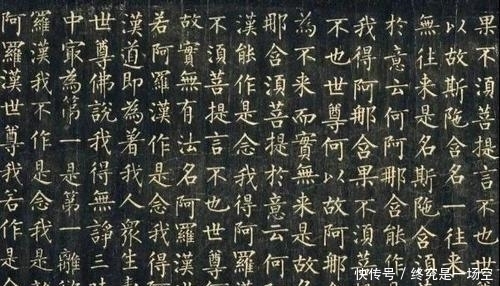 果不湏菩提言不也世
以故斯陁含名一往来
無往来是名斯陁含
於意云何阿那含能作
我得阿那含果不湏菩
不也世尊何以故阿那含
為不来而實無来是故
那含湏菩提於意云何阿
漢能作是念我得阿羅漢
不湏菩提言不也世尊
故實無有法名阿羅漢
若阿羅漢作是念我得
漢道即為着我人衆生
世尊佛說我得無諍三
中㝡為第一是第一離欲
羅漢我不作是念我是
阿羅漢世尊我若作是
快传号 / 终究是一场空